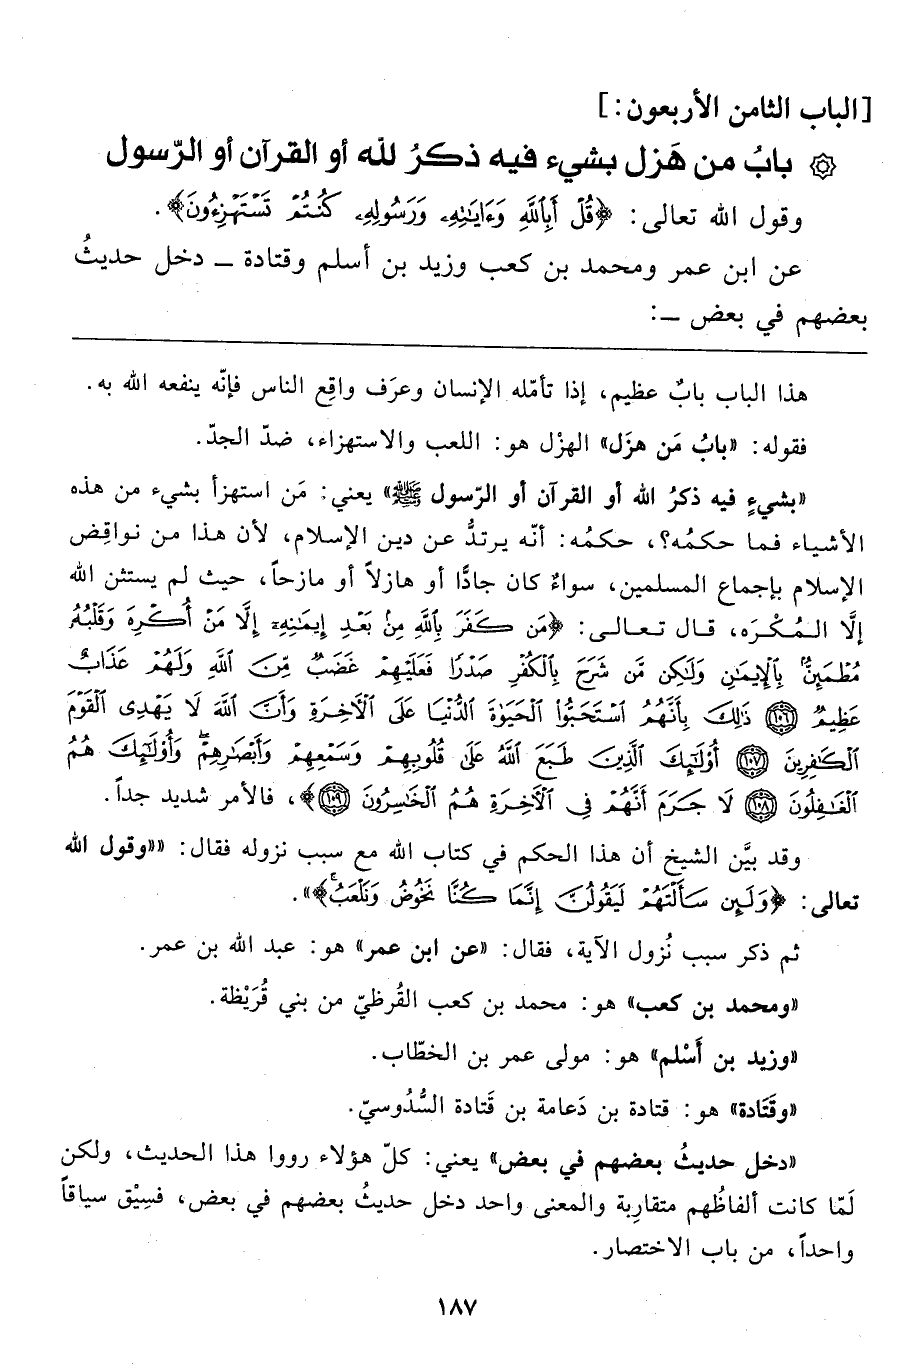 [الباب الثامن الأربعون:]
۞ بابُ من هَزل بشيء فيه ذكرُ لله أو القرآن أو الرّسول
وقول الله تعالى: ﴿قُلْ أَبِٱللَّهِ وَءَايَٰتِهِۦ وَرَسُولِهِۦ كُنتُمْ تَسْتَهْزِءُونَ﴾.
عن ابن عمر ومحمد بن كعب وزيد بن أسلم وقتادة ـ دخل حديثُ
بعضهم في بعض ـ:
هذا الباب بابٌ عظيم، إذا تأمّله الإنسان وعرَف واقِع الناس فإنّه ينفعه الله به.
فقوله: «بابُ مَن هزَل» الهزْل هو: اللعب والاستهزاء، ضدّ الجدّ.
«بشيءٍ فيه ذكرُ الله أو القرآن أو الرّسول ﷺ» يعني: مَن استهزأ بشيء من هذه
الأشياء فما حكمُه؟، حكمُه: أنّه يرتدُّ عن دين الإسلام، لأن هذا من نواقِض
الإسلام بإجماع المسلمين، سواءٌ كان جادًّا أو هازلاً أو مازحاً، حيث لم يستثن الله
إلَّا المُكْرَه، قال تعالى: ﴿مَن كَفَرَ بِٱللَّهِ مِنۢ بَعْدِ إِيمَٰنِهِۦٓ إِلَّا مَنْ أُكْرِهَ وَقَلْبُهُۥ
مُطْمَئِنٌّۢ بِٱلْإِيمَٰنِ وَلَٰكِن مَّن شَرَحَ بِٱلْكُفْرِ صَدْرًا فَعَلَيْهِمْ غَضَبٌ مِّنَ ٱللَّهِ وَلَهُمْ عَذَابٌ
عَظِيمٌ ١٠٦ ذَٰلِكَ بِأَنَّهُمُ ٱسْتَحَبُّوا۟ ٱلْحَيَوٰةَ ٱلدُّنْيَا عَلَى ٱلْءَاخِرَةِ وَأَنَّ ٱللَّهَ لَا يَهْدِى ٱلْقَوْمَ
ٱلْكَٰفِرِينَ ١٠٧ أُو۟لَٰٓئِكَ ٱلَّذِينَ طَبَعَ ٱللَّهُ عَلَىٰ قُلُوبِهِمْ وَسَمْعِهِمْ وَأَبْصَٰرِهِمْ ۖ وَأُو۟لَٰٓئِكَ هُمُ
ٱلْغَٰفِلُونَ ١٠٨ لَا جَرَمَ أَنَّهُمْ فِى ٱلْءَاخِرَةِ هُمُ ٱلْخَٰسِرُونَ ١٠٩﴾، فالأمر شديد جداً.
وقد بيَّن الشيخ أن هذا الحكم في كتاب الله مع سبب نزوله فقال: ««وقول الله
تعالى: ﴿وَلَئِن سَأَلْتَهُمْ لَيَقُولُنَّ إِنَّمَا كُنَّا نَخُوضُ وَنَلْعَبُ ۚ﴾».
ثم ذكر سبب نُزول الآية، فقال: «عن ابن عمر» هو: عبد الله بن عمر.
«ومحمد بن كعب» هو: محمد بن كعب القُرظيّ من بني قُرَيْظة.
«وزيد بن أَسْلم» هو: مولى عمر بن الخطّاب.
«وقَتَادة» هو: قتادة بن دَعامة بن قَتادة السُّدُوسيّ.
«دخل حديثُ بعضهم في بعض» يعني: كلّ هؤلاء رووا هذا الحديث، ولكن
لَمّا كانت ألفاظُهم متقارِبة والمعنى واحد دخل حديثُ بعضهم في بعض، فسِيْق سياقاً
واحداً، من باب الاختصار.
١٨٧